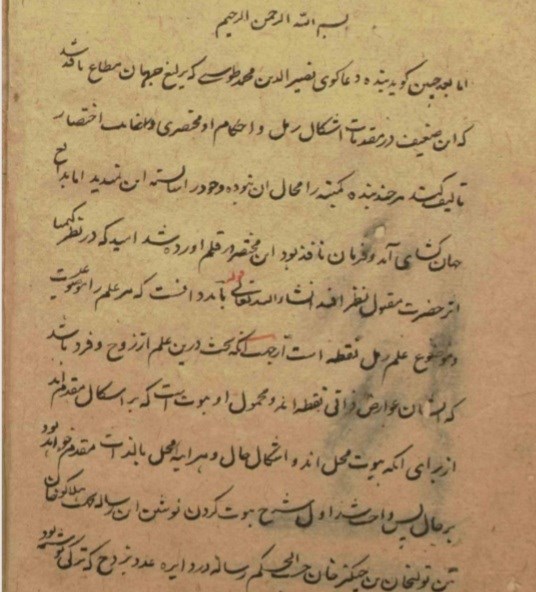 بسم الله الرحمن الرحیم
اما بعد چنین گوید بنده دعاگوی نصیر الدین محمد طوسی که یرلیغ جهان مطاع نافذ شد
که این ضعیف در مقدمات اشکال رمل و احکام او مختصری اختصار
تالیف کند هر چند بنده کمینه را محال ان نبوده و خود را شایسته این ندید اما
جهان کشای آمد و فرمان نافذ بود این مختصر در قلم اورده شد امید که در نظر کیمیا
اثر حضرت مقبول نظر افتد انشاء الله تعالی بباید دانست که هر علم را موضوعیست
و موضوع علم رمل نقطه است از جهت آنکه بحث درین علم از زوج و فرد باشد
که ایشان عوارض ذاتی نقطه اند و محمول او بیوت است که بر اشکال مقدم اند
از برای انکه بیوت محل اند و اشکال حال و هر اینه محل بالذات مقدم خواهد بود
بر حال پس واجب شد اول شرح بیوت کردن نوشتن این رساله هلاکو خان
بن تولیخان بن چنکیز خان حسب الحکم رساله در دایره عدد بزدح که ترکی